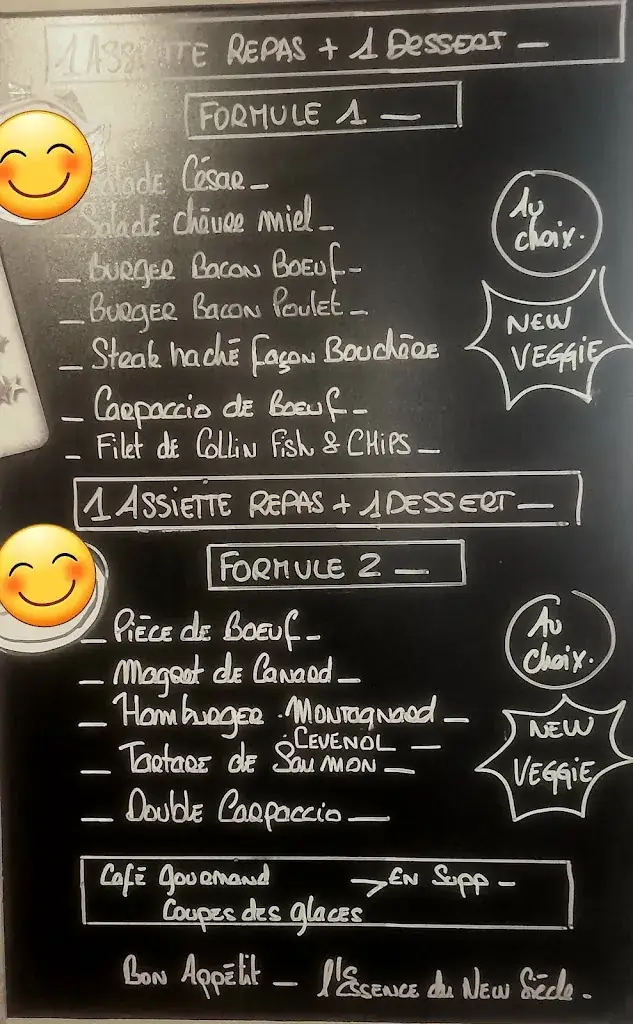 1 ASSIETTE REPAS + 1 DESSERT _
FORMULE 1 _
Salade César _
Salade chèvre miel _
_ BURGER BACON BOEUF _
_ BURGER BACON Poulet _
_ Steak haché façon Bouchère
_ Carpaccio de BOEUF _
_ Filet de Collin Fish & CHIPS _
Au choix.
NEW VEGGIE
1 ASSIETTE REPAS + 1 DESSERT _
FORMULE 2 _
_ Pièce de BOEUF _
_ Magret de Canard _
_ Hamburger . MONTAGNARD _
. CEVENOL _
_ Tartare de SAUMON _
_ Double Carpaccio _
Au choix.
NEW VEGGIE
Café gourmand → EN Supp _
Coupes des glaces
Bon Appétit _ l'ESSENCE du NEW Siècle .